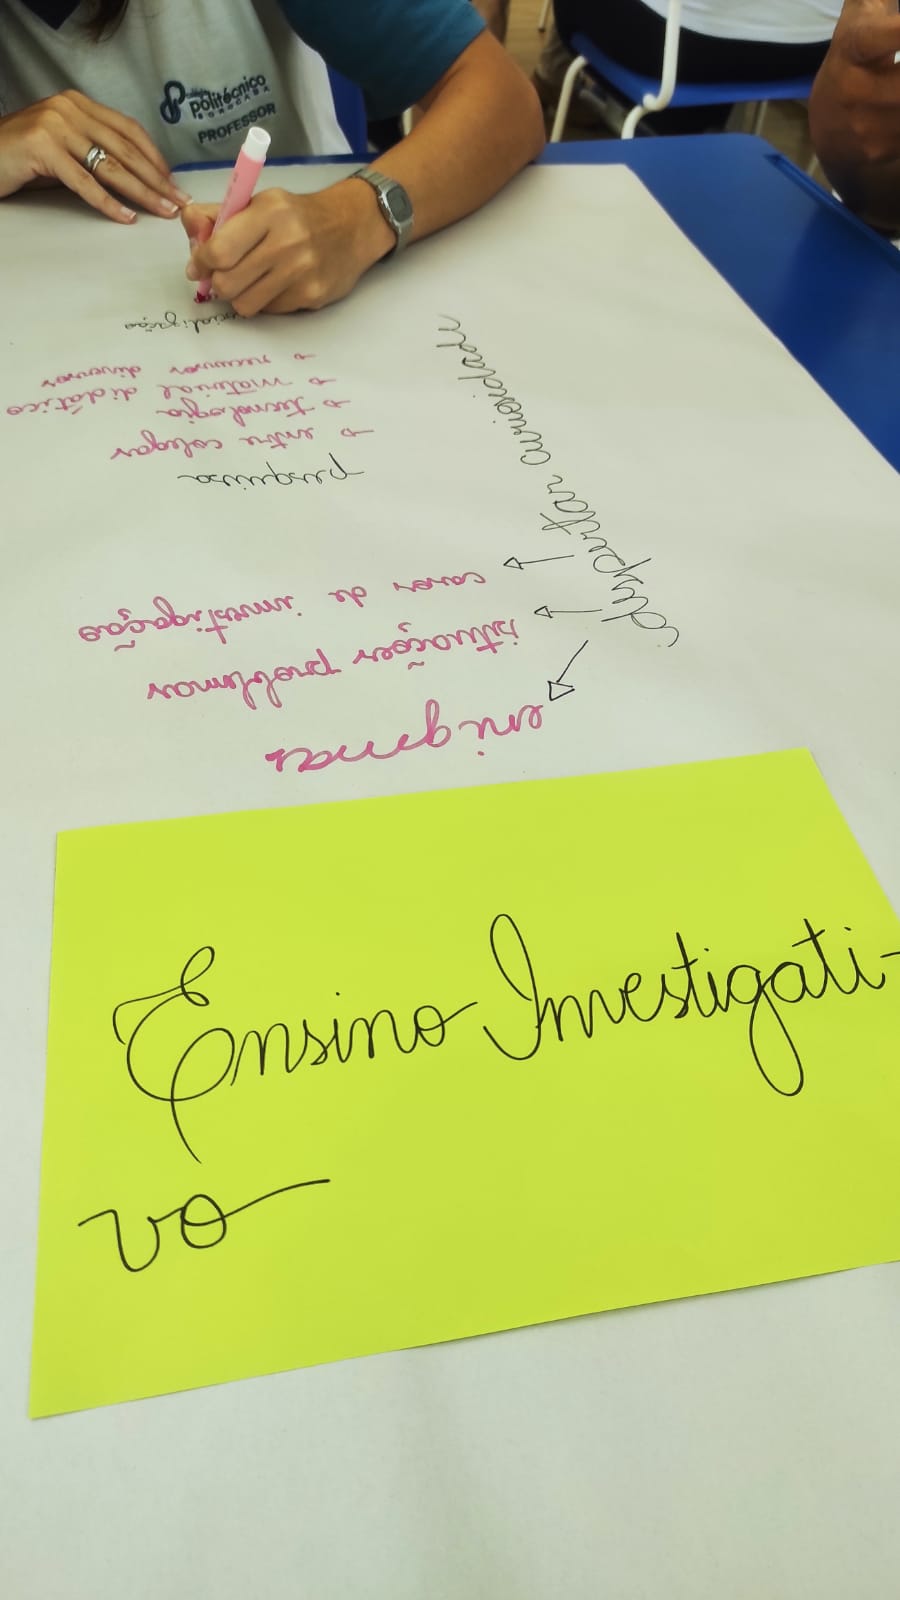 politécnico
SOROCABA
PROFESSOR
Ensino Investigati-
vo
despertar curiosidade
enigmas
situações problemas
casos de investigação
pesquisa
→ entre colegas
→ tecnologia
→ material didático
→ recursos diversos